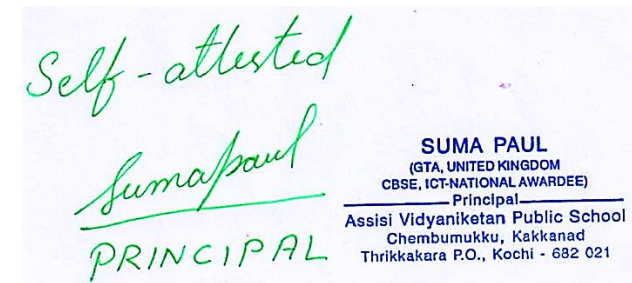 Self-attested
Sumapaul
PRINCIPAL
SUMA PAUL
(GTA, UNITED KINGDOM
CBSE, ICT-NATIONAL AWARDEE)
Principal
Assisi Vidyaniketan Public School
Chembumukku, Kakkanad
Thrikkakara P.O., Kochi - 682 021